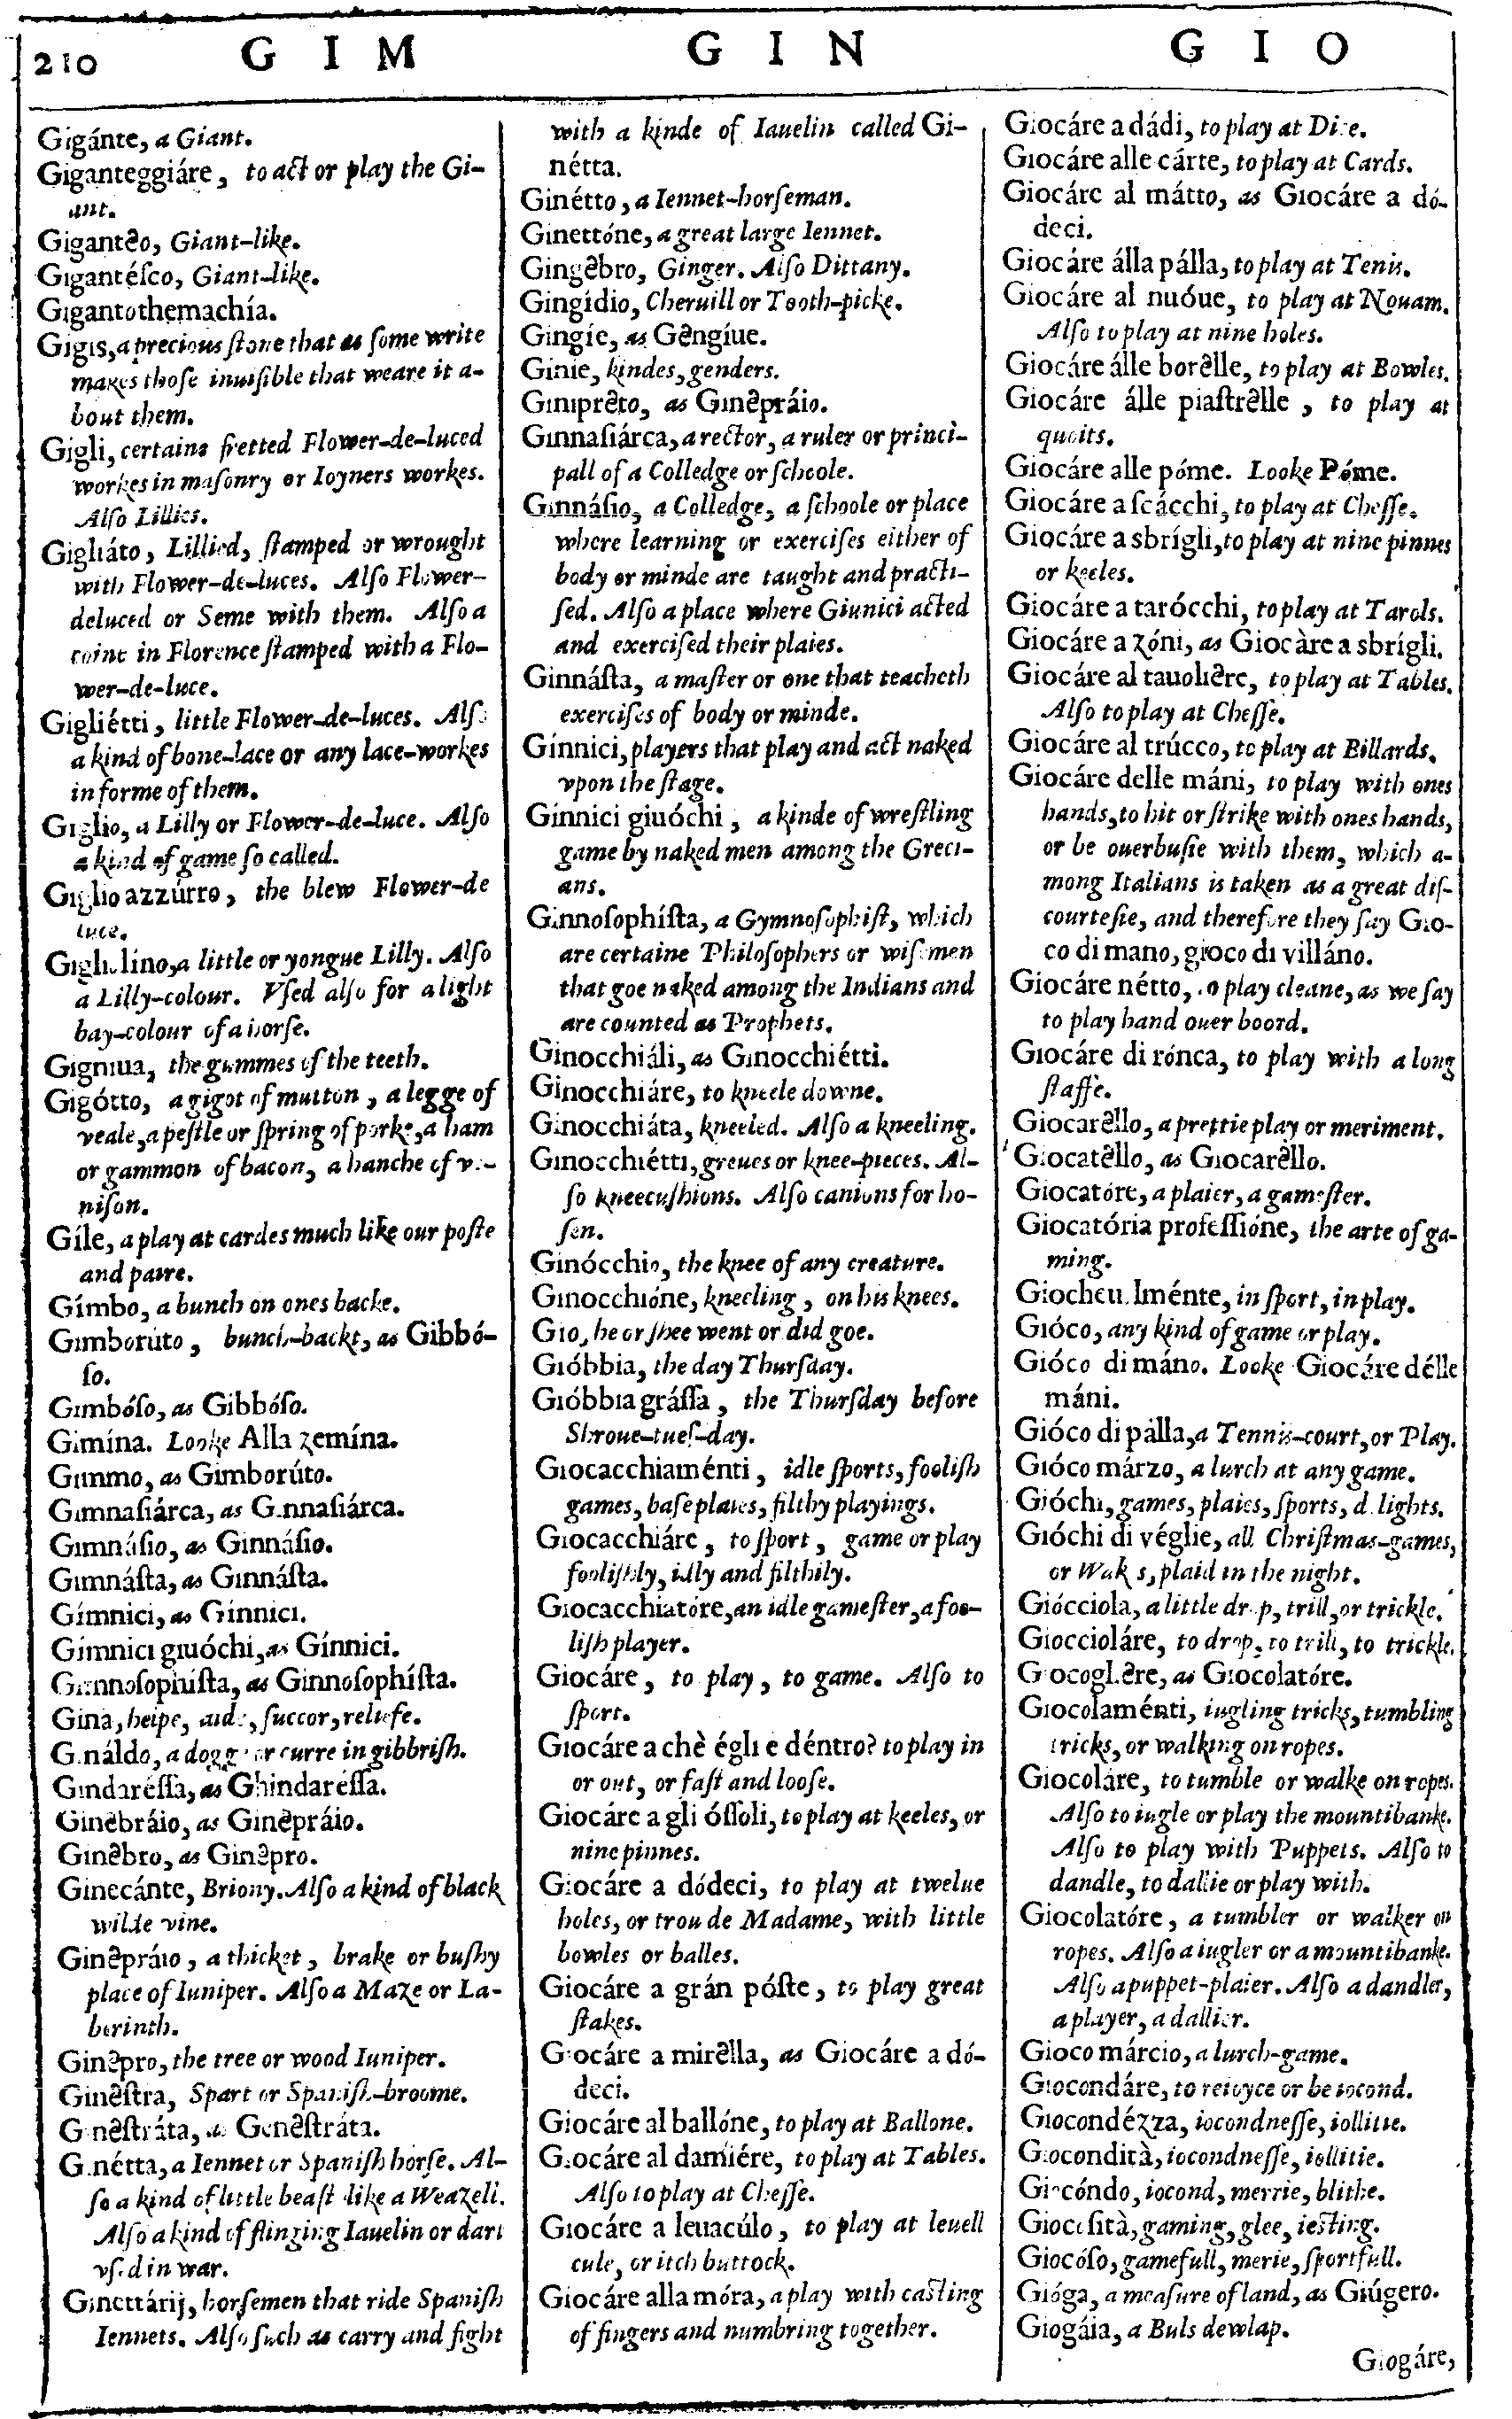 210 GIM GIN GIO
Gigánte, a Giant.
Giganteggiáre, to act or play the Gi-
ant.
Gigantêo, Giant-like.
Gigantésco, Giant-like.
Gigantothemachía.
Gigis, a precious ſtone that as ſome write
makes thoſe inuiſible that weare it a-
bout them.
Gigli, certaine fretted Flower-de-luced
workes in maſonry or Ioyners workes.
Alſo Lillies.
Gigliáto, Lillied, ſtamped or wrought
with Flower-de-luces. Alſo Flower-
deluced or Seme with them. Alſo a
coine in Florence ſtamped with a Flo-
wer-de-luce.
Gigliétti, little Flower-de-luces. Alſo
a kind of bone-lace or any lace-workes
in forme of them.
Giglio, a Lilly or Flower-de-luce. Alſo
a kind of game ſo called.
Giglio azzúrro, the blew Flower-de
luce.
Gigliolino, a little or yongue Lilly. Alſo
a Lilly-colour. Vſed alſo for a light
bay-colour of a horſe.
Gigniua, the gummes of the teeth.
Gigótto, a gigot of mutton, a legge of
veale, a peſtle or ſpring of porke, a ham
or gammon of bacon, a hanche of ve-
niſon.
Gíle, a play at cardes much like our poſte
and paire.
Gímbo, a bunch on ones backe.
Gimborúto, bunch-backt, as Gibbó-
ſo.
Gimbóſo, as Gibbóſo.
Gimína. Looke Alla zemína.
Gimmo, as Gimborúto.
Gimnaſiárca, as Ginnaſiárca.
Gimnáſio, as Ginnáſio.
Gimnáſta, as Ginnáſta.
Gímnici, as Gínnici.
Gímnici giuóchi, as Gínnici.
Gimnoſophiſta, as Ginnoſophíſta.
Gina, helpe, aide, ſuccor, reliefe.
Gináldo, a dogge or curre in gibbriſh.
Gindaréſſa, as Ghindaréſſa.
Ginêbráio, as Ginêpráio.
Ginêbro, as Ginêpro.
Ginecánte, Briony. Alſo a kind of black
wilde vine.
Ginêpráio, a thicket, brake or buſhy
place of Iuniper. Alſo a Maze or La-
berinth.
Ginêpro, the tree or wood Iuniper.
Ginêſtra, Spart or Spaniſh-broome.
Ginêſtráta, as Genêſtráta.
Ginétta, a Iennet or Spaniſh horſe. Al-
ſo a kind of little beaſt like a Weazell.
Alſo a kind of flinging Iauelin or dart
vſed in war.
Ginettárij, horſemen that ride Spaniſh
Iennets. Alſo ſuch as carry and fight
with a kinde of Iauelin called Gi-
nétta.
Ginétto, a Iennet-horſeman.
Ginettóne, a great large Iennet.
Gingêbro, Ginger. Alſo Dittany.
Gingídio, Cheruill or Tooth-picke.
Gingíe, as Gêngíue.
Ginie, kindes, genders.
Giniprêto, as Ginêpráio.
Ginnaſiárca, a rector, a ruler or princi-
pall of a Colledge or ſchoole.
Ginnáſio, a Colledge, a ſchoole or place
where learning or exerciſes either of
body or minde are taught and practi-
ſed. Alſo a place where Giunici acted
and exerciſed their plaies.
Ginnáſta, a maſter or one that teacheth
exerciſes of body or minde.
Gínnici, players that play and act naked
vpon the ſtage.
Gínnici giuóchi, a kinde of wreſtling
game by naked men among the Greci-
ans.
Ginnoſophíſta, a Gymnoſophiſt, which
are certaine Philoſophers or wiſemen
that goe naked among the Indians and
are counted as Prophets.
Ginocchiáli, as Ginocchiétti.
Ginocchiáre, to kneele downe.
Ginocchiáta, kneeled. Alſo a kneeling.
Ginocchiétti, greues or knee-pieces. Al-
ſo kneecuſhions. Alſo canions for ho-
ſen.
Ginócchio, the knee of any creature.
Ginocchióne, kneeling, on his knees.
Gio, he or ſhee went or did goe.
Gióbbia, the day Thurſday.
Gióbbia gráſſa, the Thurſday before
Shroue-tueſ-day.
Giocacchiaménti, idle ſports, fooliſh
games, baſe plaies, filthy playings.
Giocacchiáre, to ſport, game or play
fooliſhly, idly and filthily.
Giocacchiatóre, an idle gameſter, a foo-
liſh player.
Giocáre, to play, to game. Alſo to
ſport.
Giocáre a chè égli e déntro? to play in
or out, or faſt and looſe.
Giocáre a gli óſſoli, to play at keeles, or
nine pinnes.
Giocáre a dódeci, to play at twelue
holes, or trou de Madame, with little
bowles or balles.
Giocáre a grán póſte, to play great
ſtakes.
Giocáre a mirêlla, as Giocáre a dó-
deci.
Giocáre al ballóne, to play at Ballone.
Giocáre al damiére, to play at Tables.
Alſo to play at Cheſſe.
Giocáre a leuacúlo, to play at leuell
cule, or itch buttock.
Giocáre alla móra, a play with caſting
of fingers and numbring together.
Giocáre a dádi, to play at Dice.
Giocáre alle cárte, to play at Cards.
Giocáre al mátto, as Giocáre a dó-
deci.
Giocáre álla pálla, to play at Tenis.
Giocáre al nuóue, to play at Nouam.
Alſo to play at nine holes.
Giocáre álle borêlle, to play at Bowles.
Giocáre álle piaſtrêlle, to play at
quoits.
Giocáre alle póme. Looke Póme.
Giocáre a ſcácchi, to play at Cheſſe.
Giocáre a sbrígli, to play at nine pinnes
or keeles.
Giocáre a tarócchi, to play at Tarols.
Giocáre a zóni, as Giocàre a sbrígli.
Giocáre al tauoliêre, to play at Tables.
Alſo to play at Cheſſe.
Giocáre al trúcco, to play at Billards.
Giocáre delle máni, to play with ones
hands, to hit or ſtrike with ones hands,
or be ouerbuſie with them, which a-
mong Italians is taken as a great diſ-
courteſie, and therefore they ſay Gio-
co di mano, gioco di villáno.
Giocáre nétto, to play cleane, as we ſay
to play hand ouer boord.
Giocáre di rónca, to play with a long
ſtaffe.
Giocarêllo, a prettie play or meriment.
Giocatêllo, as Giocarêllo.
Giocatóre, a plaier, a gameſter.
Giocatória profeſſióne, the arte of ga-
ming.
Giocheuolménte, in ſport, in play.
Gióco, any kind of game or play.
Gióco di máno. Looke Giocáre délle
máni.
Gióco di pálla, a Tennis-court, or Play.
Gióco márzo, a lurch at any game.
Gióchi, games, plaies, ſports, delights.
Gióchi di véglie, all Chriſtmas-games,
or Wakes, plaid in the night.
Giócciola, a little drop, trill, or trickle.
Gioccioláre, to drop, to trill, to trickle.
Giocogliêre, as Giocolatóre.
Giocolaménti, iugling tricks, tumbling
tricks, or walking on ropes.
Giocoláre, to tumble or walke on ropes.
Alſo to iugle or play the mountibanke.
Alſo to play with Puppets. Alſo to
dandle, to dallie or play with.
Giocolatóre, a tumbler or walker on
ropes. Alſo a iugler or a mountibanke.
Alſo a puppet-plaier. Alſo a dandler,
a player, a dallier.
Gioco márcio, a lurch-game.
Giocondáre, to reioyce or be iocond.
Giocondézza, iocondneſſe, iollitie.
Giocondità, iocondneſſe, iollitie.
Giocóndo, iocond, merrie, blithe.
Giocoſità, gaming, glee, ieſting.
Giocóſo, gamefull, merie, ſportfull.
Gióga, a meaſure of land, as Giúgero.
Giogáia, a Buls dewlap.
Giogáre,